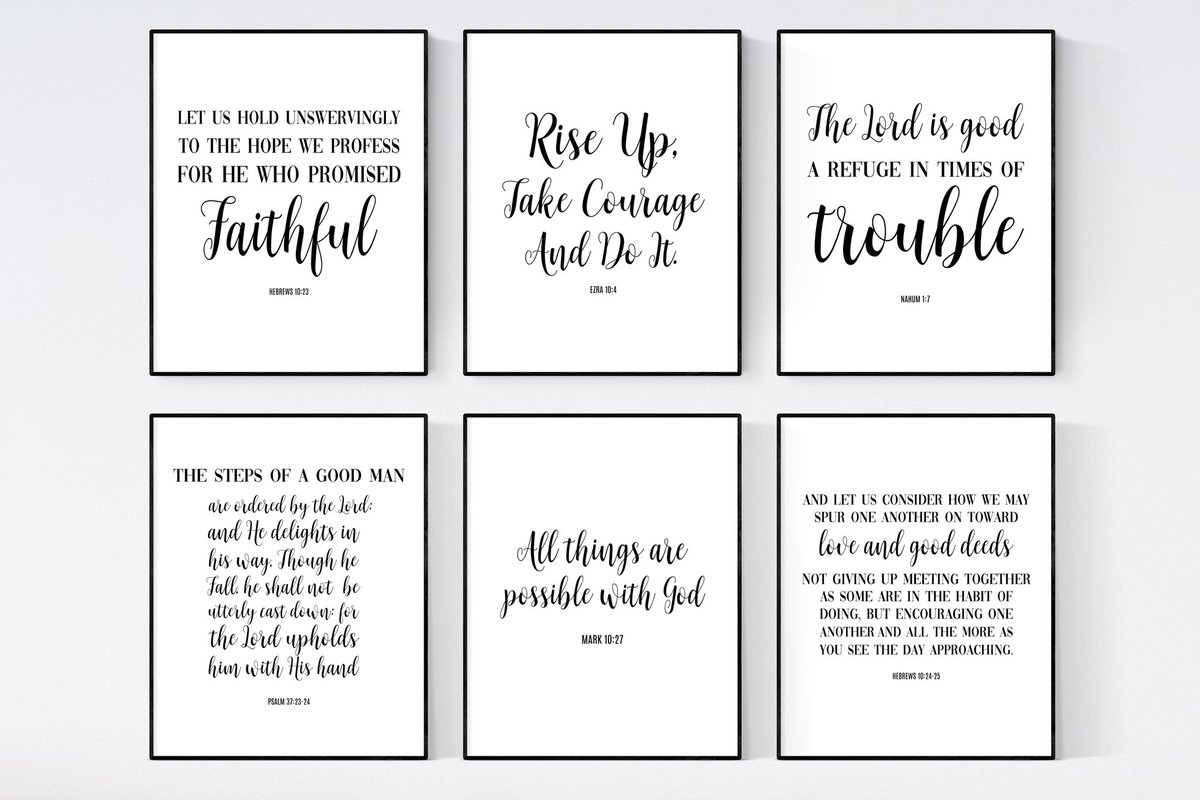 LET US HOLD UNSWERVINGLY
TO THE HOPE WE PROFESS
FOR HE WHO PROMISED
Faithful
HEBREWS 10:23
Rise Up,
Take Courage
And Do It.
EZRA 10:4
The Lord is good
A REFUGE IN TIMES OF
trouble
NAHUM 1:7
THE STEPS OF A GOOD MAN
are ordered by the Lord:
and He delights in
his way. Though he
Fall. he shall not be
utterly cast down: for
the Lord upholds
him with His hand
PSALM 37:23-24
All things are
possible with God
MARK 10:27
AND LET US CONSIDER HOW WE MAY
SPUR ONE ANOTHER ON TOWARD
love and good deeds
NOT GIVING UP MEETING TOGETHER
AS SOME ARE IN THE HABIT OF
DOING, BUT ENCOURAGING ONE
ANOTHER AND ALL THE MORE AS
YOU SEE THE DAY APPROACHING.
HEBREWS 10:24-25